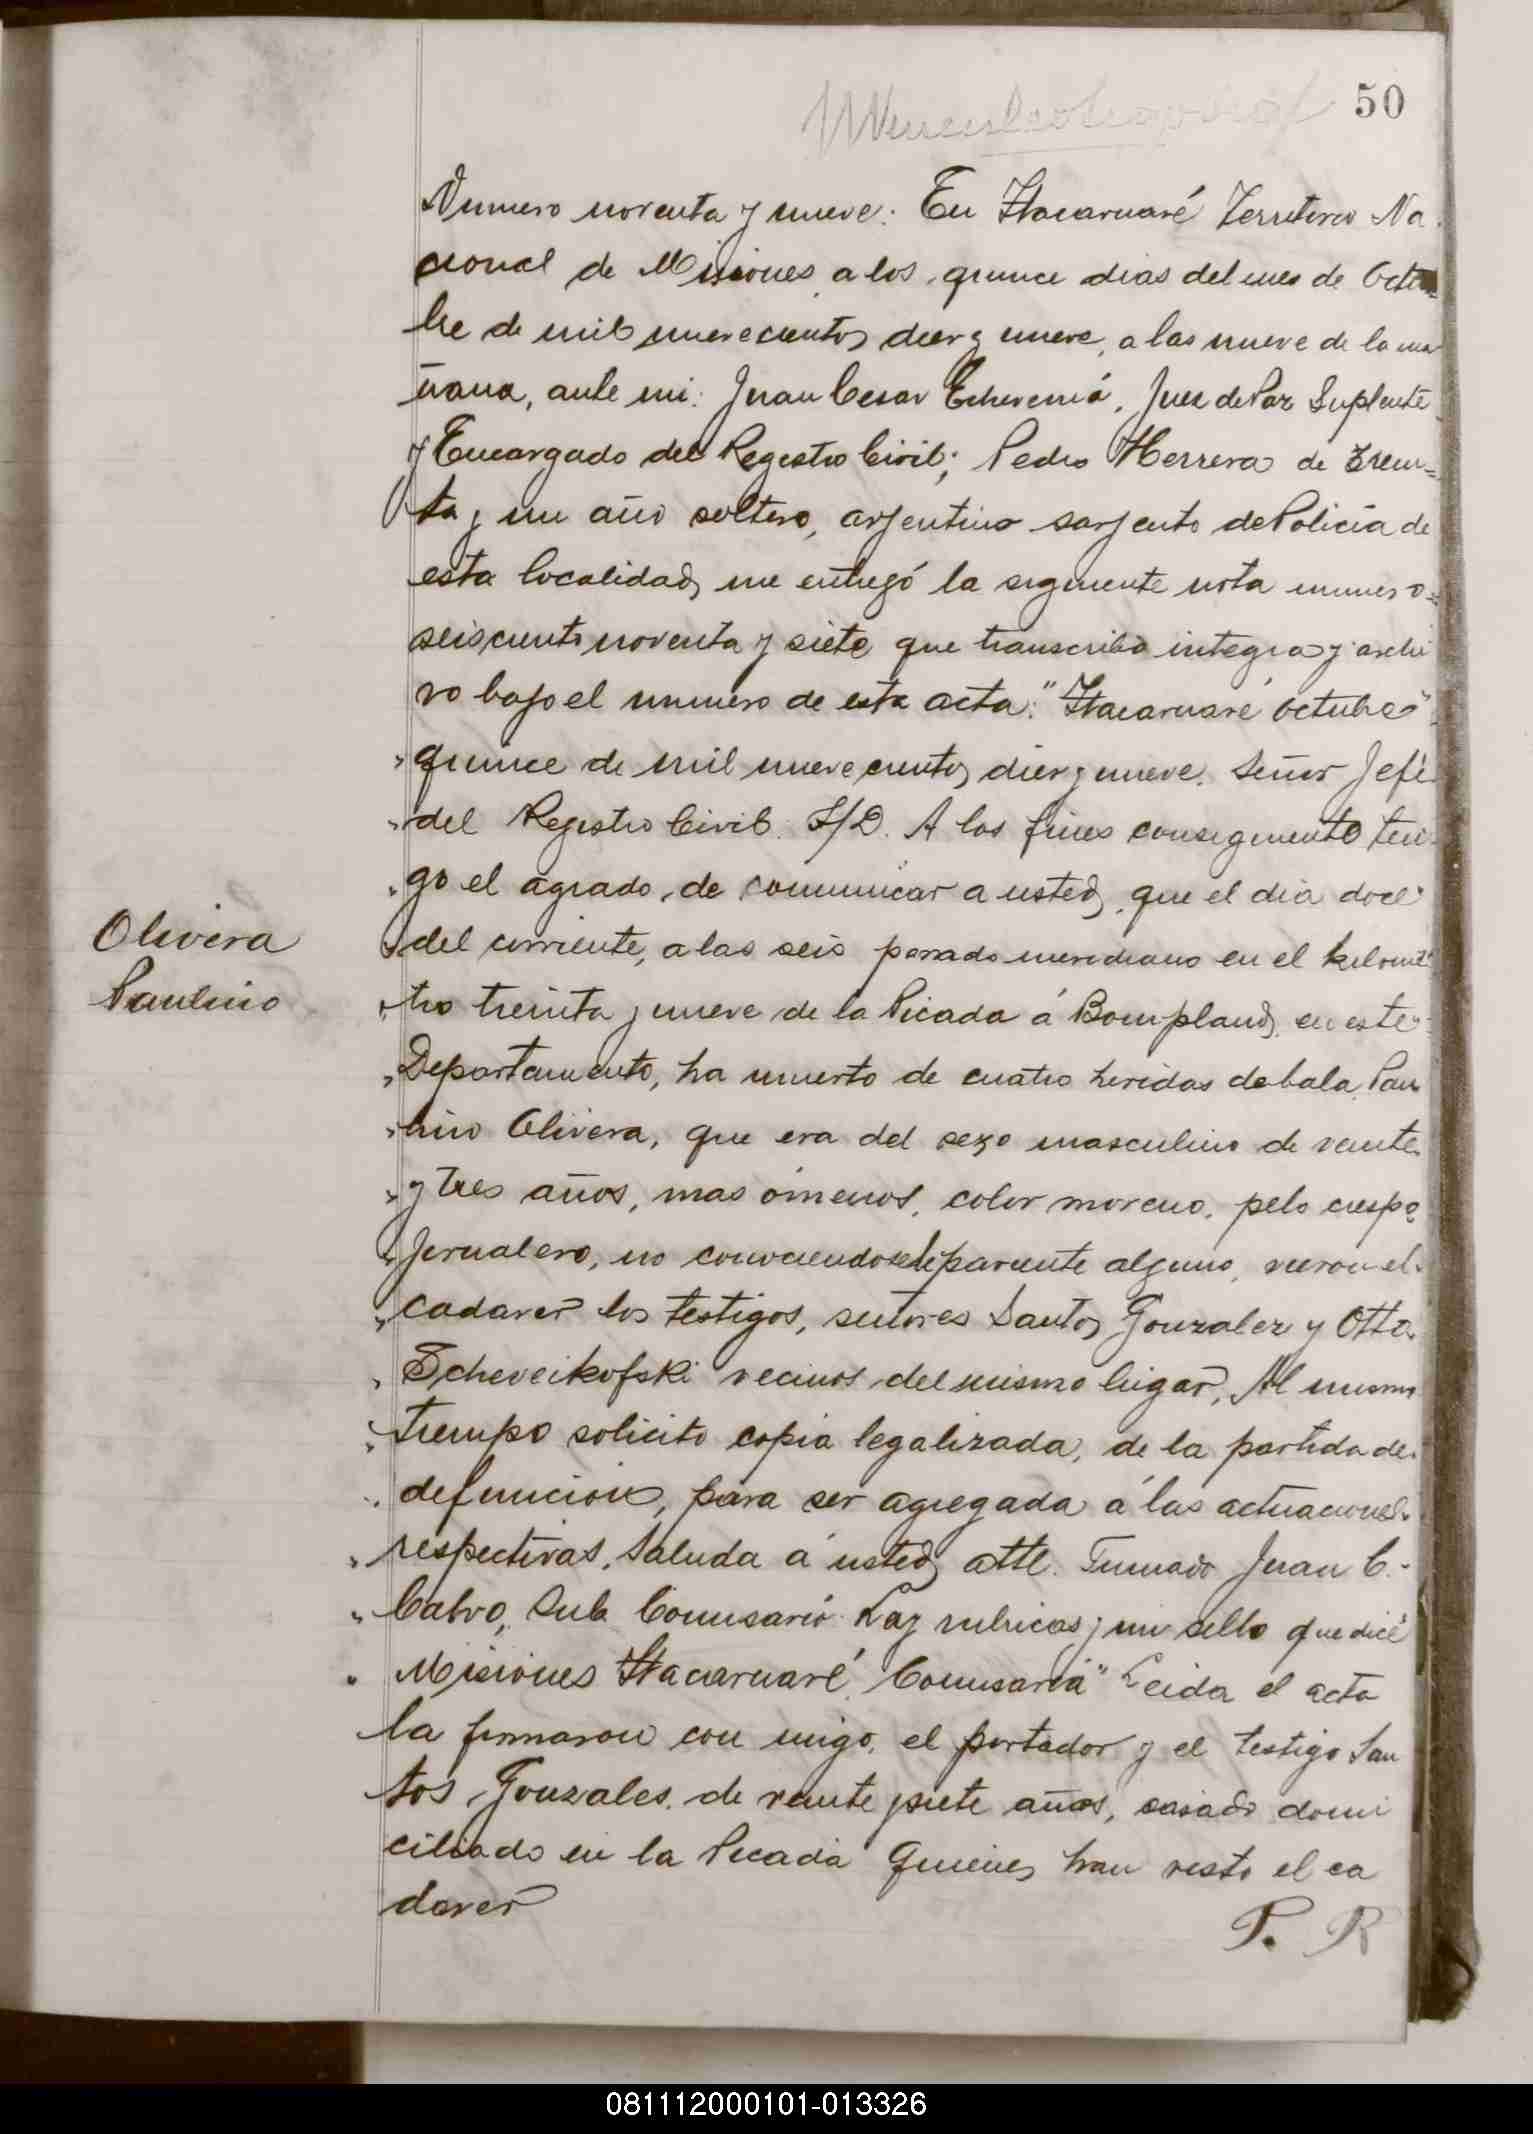 50
Numero noventa y nueve: En Itacaruaré Territorio Na
cional de Misiones a los quince dias del mes de Octu=
bre de mil nuevecientos diez y nueve, a las nueve de la ma
ñana, ante mi: Juan Cesar Echeverriá, Juez de Paz Suplente
y Encargado del Registro Civil; Pedro Herrera de trein=
ta y un año soltero, arjentino sarjento de Policía de
esta localidad, me entregó la siguiente nota numero=
seiscientos noventa y siete que transcribo integra y archi
vo bajo el numero de esta acta: "Itacaruaré Octubre"
"quince de mil nuevecientos diez y nueve. Señor Jefe
"del Registro Civil. S/D. A los fines consiguiente ten
"go el agrado, de comunicar a usted, que el dia doce"
"del corriente, a las seis pasado meridiano en el kilome"
"tro treinta y nueve de la Picada á Bompland, en este"
"Departamento, ha muerto de cuatro heridas de bala, Pau
"lino Olivera, que era del sexo masculino de veinte
"y tres años, mas ó menos, color moreno, pelo crespo
"jornalero, no conociendosele pariente alguno, vieron el
"cadaver los testigos, señores Santos Gonzalez y Otto
"Scheveikofski vecinos del mismo lugar, Al mismo
"tiempo solicito copia legalizada, de la partida de
"defuncion, para ser agregada á las actuaciones
"respectivas, Saluda á usted atte. Firmado Juan C.
"Calvo, Sub Comisario. Hay rubricas y un sello que dice
" Misiones Itacaruaré, Comisaria" Leida el acta
la firmaron con migo, el portador y el testigo San
tos Gonzales, de veinte y siete años, casado domi
ciliado en la Picada Quienes han visto el ca
daver
P. R
Olivera
Paulino
081112000101-013326